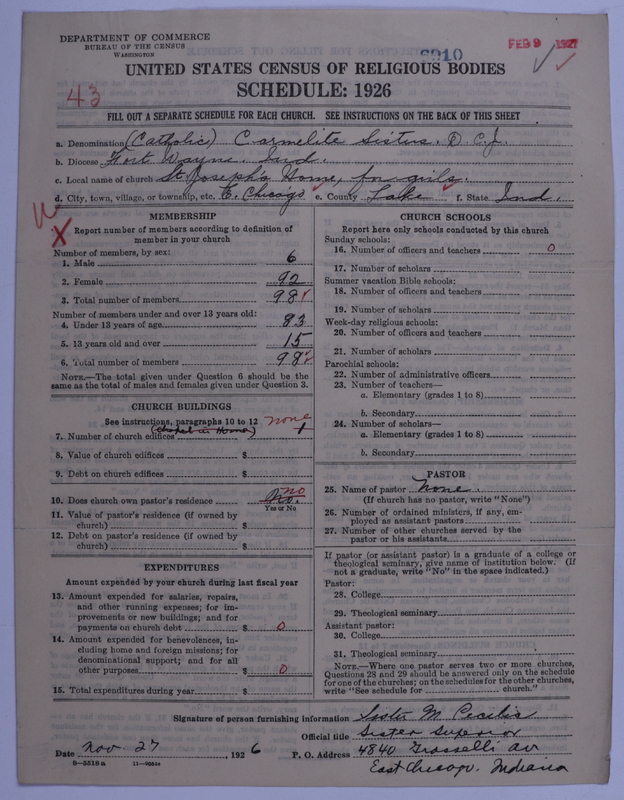 DEPARTMENT OF COMMERCE
BUREAU OF THE CENSUS
WASHINGTON
6910
FEB 9 1927
UNITED STATES CENSUS OF RELIGIOUS BODIES
SCHEDULE: 1926
43
FILL OUT A SEPARATE SCHEDULE FOR EACH CHURCH. SEE INSTRUCTIONS ON THE BACK OF THIS SHEET
a. Denomination (Catholic) Carmelite Sisters. D C.J.
b. Diocese Fort Wayne, Ind.
c. Local name of church St Joseph's Home, for girls.
d. City, town, village, or township, etc. E. Chicago e. County Lake f. State Ind.
MEMBERSHIP
Report number of members according to definition of
member in your church
Number of members, by sex:
1. Male 6
2. Female 92
3. Total number of members 98
Number of members under and over 13 years old:
4. Under 13 years of age 83
5. 13 years old and over 15
6. Total number of members 98
NOTE.—The total given under Question 6 should be the
same as the total of males and females given under Question 3.
CHURCH BUILDINGS
See instructions, paragraphs 10 to 12 none
(chapel in Home)
7. Number of church edifices 1
8. Value of church edifices $
9. Debt on church edifices $
10. Does church own pastor's residence No. no
Yes or No
11. Value of pastor's residence (if owned by
church) $
12. Debt on pastor's residence (if owned by
church) $
EXPENDITURES
Amount expended by your church during last fiscal year
13. Amount expended for salaries, repairs,
and other running expenses; for im-
provements or new buildings; and for
payments on church debt $ 0
14. Amount expended for benevolences, in-
cluding home and foreign missions; for
denominational support; and for all
other purposes $ 0
15. Total expenditures during year $
CHURCH SCHOOLS
Report here only schools conducted by this church
Sunday schools:
16. Number of officers and teachers 0
17. Number of scholars
Summer vacation Bible schools:
18. Number of officers and teachers
19. Number of scholars
Week-day religious schools:
20. Number of officers and teachers
21. Number of scholars
Parochial schools:
22. Number of administrative officers
23. Number of teachers—
a. Elementary (grades 1 to 8)
b. Secondary
24. Number of scholars—
a. Elementary (grades 1 to 8)
b. Secondary
PASTOR
25. Name of pastor None.
(If church has no pastor, write "None")
26. Number of ordained ministers, if any, em-
ployed as assistant pastors
27. Number of other churches served by the
pastor or his assistants
If pastor (or assistant pastor) is a graduate of a college or
theological seminary, give name of institution below. (If
not a graduate, write "No" in the space indicated.)
Pastor:
28. College
29. Theological seminary
Assistant pastor:
30. College
31. Theological seminary
NOTE.—Where one pastor serves two or more churches,
Questions 28 and 29 should be answered only on the schedule
for one of the churches; on the schedules for the other churches,
write "See schedule for church."
Signature of person furnishing information Sister M Cecilia
Official title Sister Superior
Date Nov 27, 1926 P. O. Address 4840 Grasselli av
East Chicago, Indiana
9-5518a 11-9664a